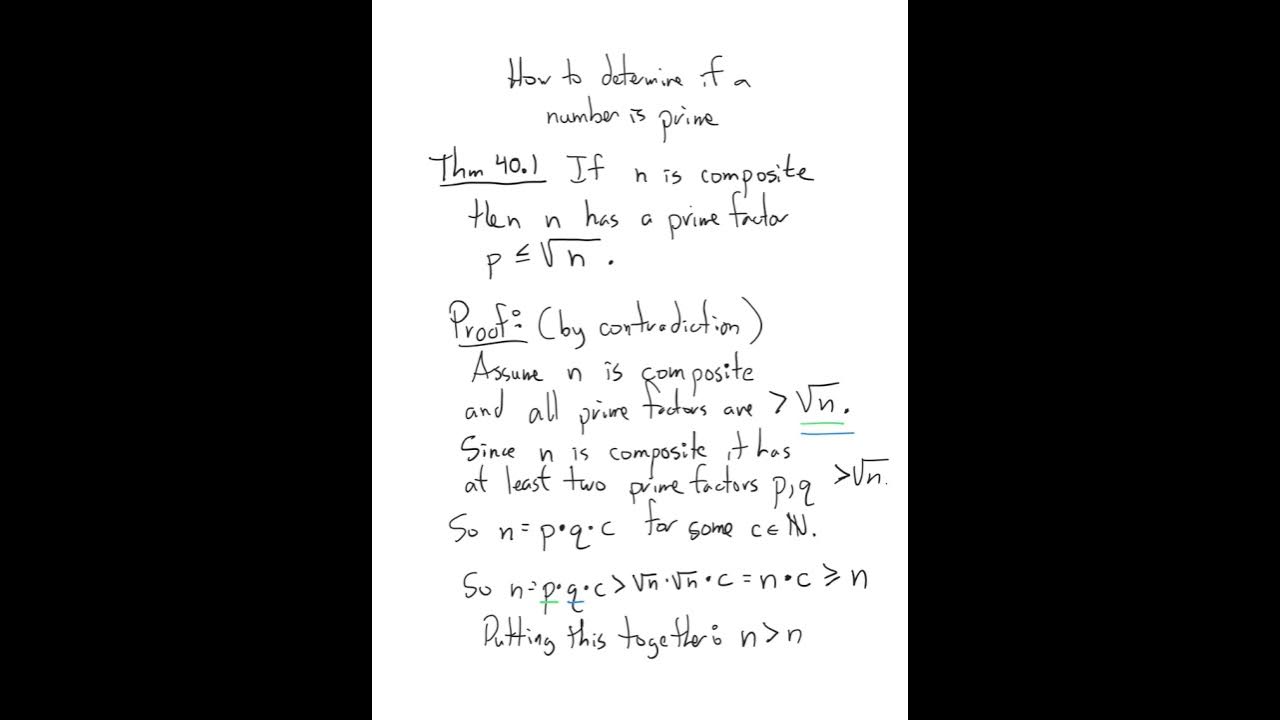 How to determine if a
number is prime
Thm 40.1 If n is composite
then n has a prime factor
p ≤ √n .
Proof: (by contradiction)
Assume n is composite
and all prime factors are > √n.
Since n is composite it has
at least two prime factors p,q >√n.
So n = p·q·c for some c∈ℕ.
So n = p·q·c > √n·√n·c = n·c ≥ n
Putting this together: n > n